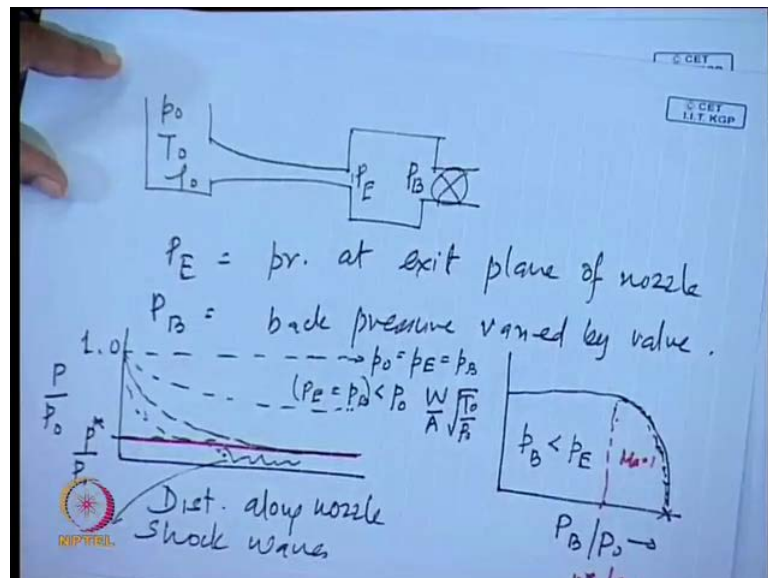 © CET
© CET
I.I.T. KGP
p₀
T₀
ρ₀
P_E
P_B
P_E = pr. at exit plane of nozzle
P_B = back pressure varied by valve.
1.0
→ p₀ = p_E = p_B
(P_E = p_B) < p₀
P/p₀
p*/p
W/A √T₀/p₀
p_B < p_E
Ma=1
P_B/P₀ →
Dist. along nozzle
Shock waves
NPTEL